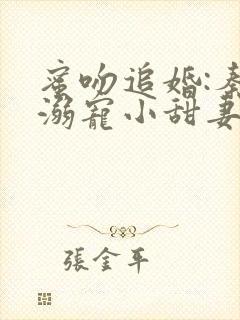 蜜吻追婚:秦
溺寵小甜妻
張金平